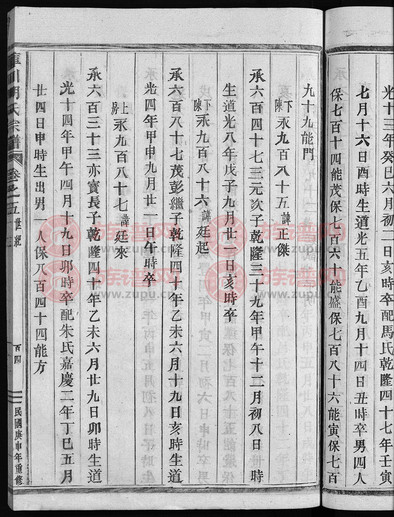 光十三年癸巳六月初二日亥時卒配馬氏乾隆四十七年壬寅
七月十六日酉時生道光五年乙酉九月十四日丑時卒男四人
保七百十四能茂保七百六八能盛保七百八十六能寅保七百
九十九能門
下陳 永九百八十五諱正傑
承六百四十七三元次子乾隆三十九年甲午十二月初八日時
生道光八年戊子九月廿一日亥時卒
下陳 永九百八十六諱廷起
承六百八十七茂彭繼子乾隆四十年乙未六月十九日亥時生道
光四年甲申九月廿一日午時卒
上房 永九百八十七諱廷來
承六百三十三亦賓長子乾隆四十年乙未六月廿九日卯時生道
光十四年甲午四月十九日卯時卒配朱氏嘉慶二年丁巳五月
廿四日申時生出男一人保八百四十四能方
胡氏宗譜 卷之五 世紀
百四
民國庚申年重修
族譜网
www.zupu.cn